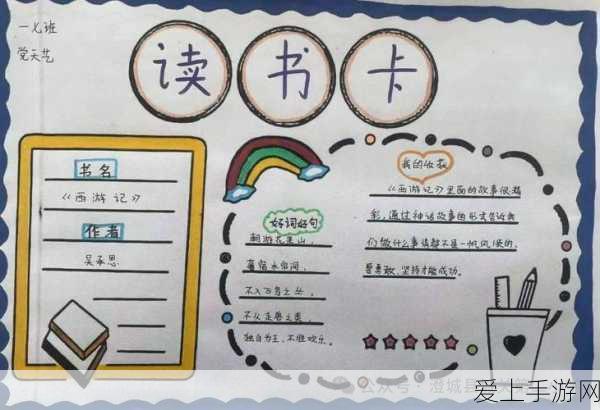 一、七班
党天艺
读书卡
书名
《西游记》
作者
吴承恩
好词好句
朝游花果山，
暮宿水帘洞，
不入飞鸟之丛，
不从走兽之类，
独自为王，不胜欢乐。
我的收获
《西游记》里面的故事很精
彩，通过神话故事的形式告诉我
们做什么事情都不是一帆风顺的，
要勇敢，坚持才能成功。
公众号·澄城县
爱上手游网